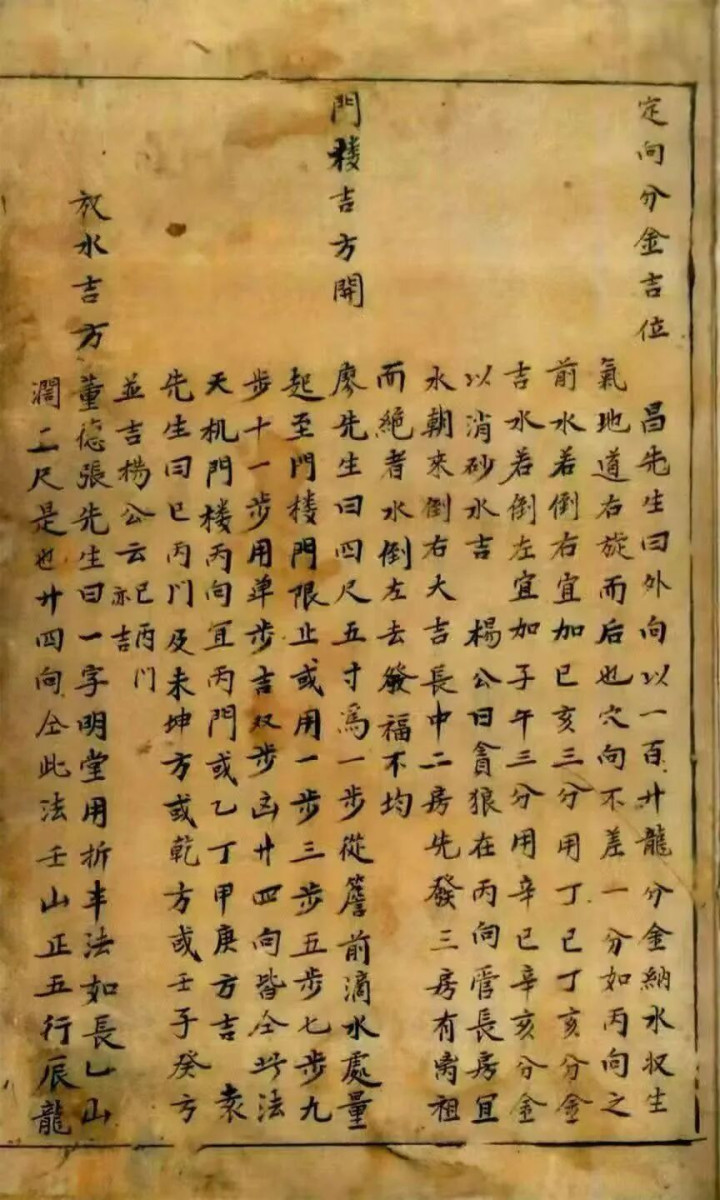 定向分金吉位
昌先生曰外向以一百廿龍分金納水収生
氣地道右旋而后也穴向不差一分如丙向之
前水若倒右宜加巳亥三分用丁巳丁亥分金
吉水若倒左宜加子午三分用辛巳辛亥分金
以消砂水吉 楊公曰貪狼在丙向管長房宜
水朝来倒右大吉長中二房先發三房有离祖
而絕者水倒左去發福不均
門楼吉方開
廖先生曰四尺五寸為一步從簷前滴水處量
起至門楼門限止或用一步三步五步七步九
步十一步用单步吉双步凶廿四向皆仝此法
天机門楼丙向宜丙門或乙丁甲庚方吉 袁
先生曰巳丙門及未坤方或乾方或壬子癸方
並吉楊公云巳丙門亦吉
放水吉方
董德張先生曰一字明堂用折半法如長乙山
濶二尺是也廿四向仝此法壬山正五行辰龍